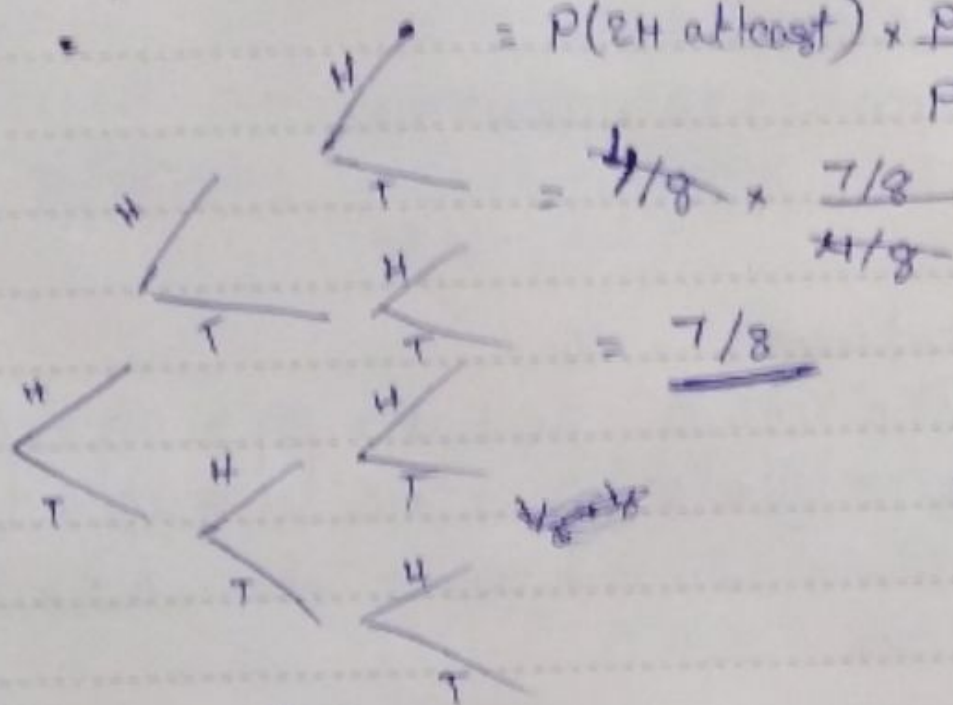 = P(2H atleast) × P
P
H
T
= 4/8 × 7/8
4/8
H
T
H
T
= 7/8
H
T
H
T
H
T
H
T